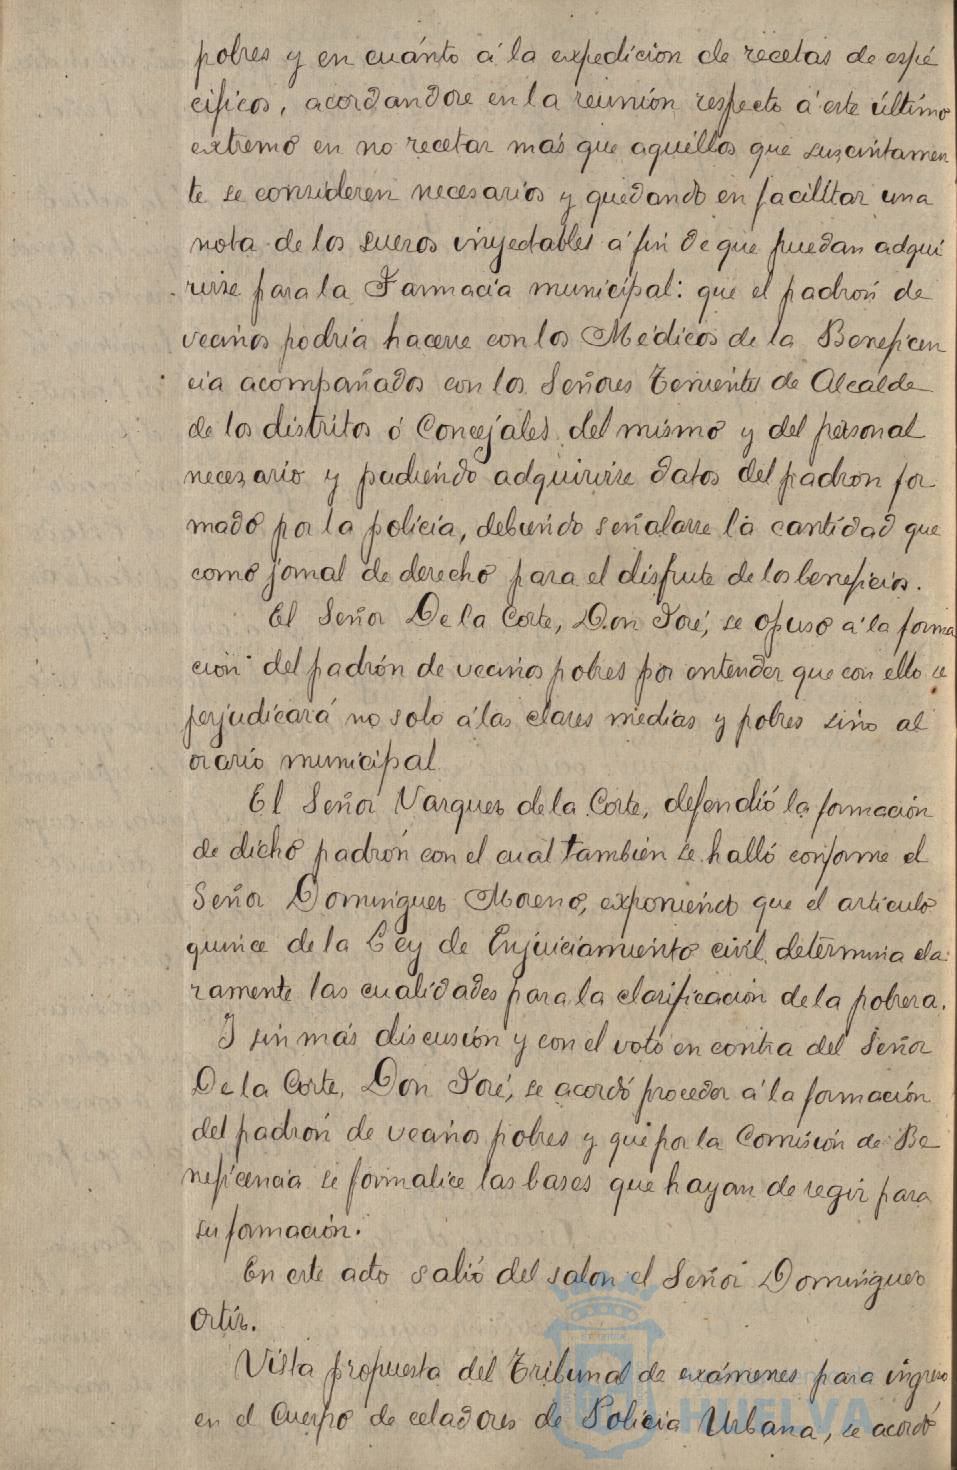 pobres y en cuánto á la expedición de recetas de espe
cificos, acordandose en la reunión respecto á este último
extremo en no recetar más que aquéllos que suscintamen
te se consideren necesarios y quedando en facilitar una
nota de los sueros inyectables á fin de que puedan adqui
rirse para la Farmacia municipal: que el padrón de
vecinos podría hacerse con los Médicos de la Beneficen
cia acompañados con los Señores Tenientes de Alcalde
de los distritos ó Concejales del mismo y del personal
necesario y pudiendo adquirirse datos del padron for
mado por la policía, debiendo señalarse la cantidad que
como jornal de derecho para el disfrute de los beneficios.
El Señor De la Corte, Don José, se opuso á la forma
ción del padrón de vecinos pobres por entender que con ello se
perjudicará no solo á las clases medias y pobres sino al
erario municipal
El Señor Vazquez de la Corte, defendió la formación
de dicho padrón con el cual también se halló conforme el
Señor Dominguez Moreno, exponiendo que el articulo
quince de la Ley de Enjuiciamiento civil determina cla-
ramente las cualidades para la clasificación de la pobreza.
Y sin más discusión y con el voto en contra del Señor
De la Corte, Don José, se acordó proceder á la formación
del padrón de vecinos pobres y que por la Comisión de Be
neficencia se formalice las bases que hayan de regir para
su formación.
En este acto salió del salon el Señor Dominguez
Ortíz.
Vista propuesta del Tribunal de exámenes para ingreso
en el Cuerpo de celadores de Policia Urbana, se acordó
HUELVA